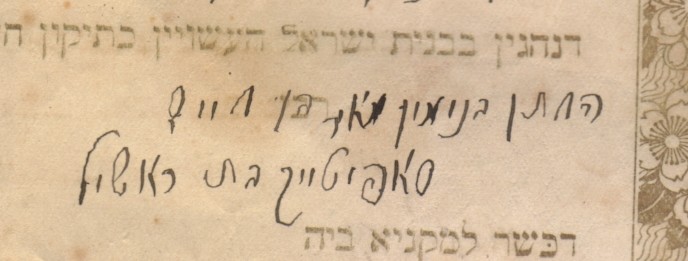 דנהגין בבנות ישראל העשויין כתיקון
החתן בנימין בן חיים
ראשיל
דכשר למקניא ביה